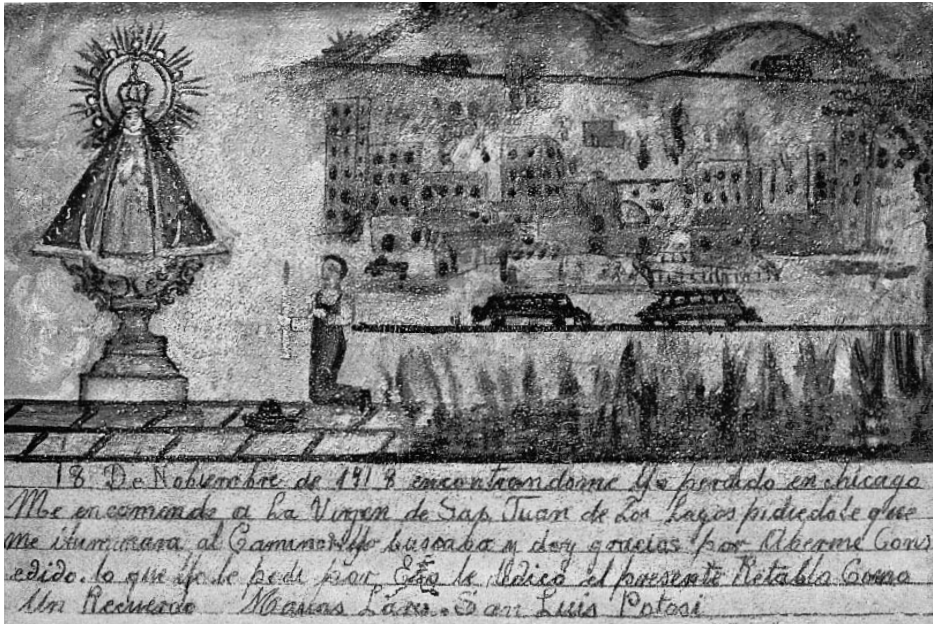 18 De Nobiembre de 1918 encontrandome Yo perdido en chicago
Me encomende a La Virgen de San Juan de Los Lagos pidiedole que
me iluminara al Camino Yo buscaba y doy gracias por Aberme Cons
edido. lo que yo le pedi por Eso le dedico el presente Retablo Como
Un Recuerdo Matias Lara. San Luis Potosi